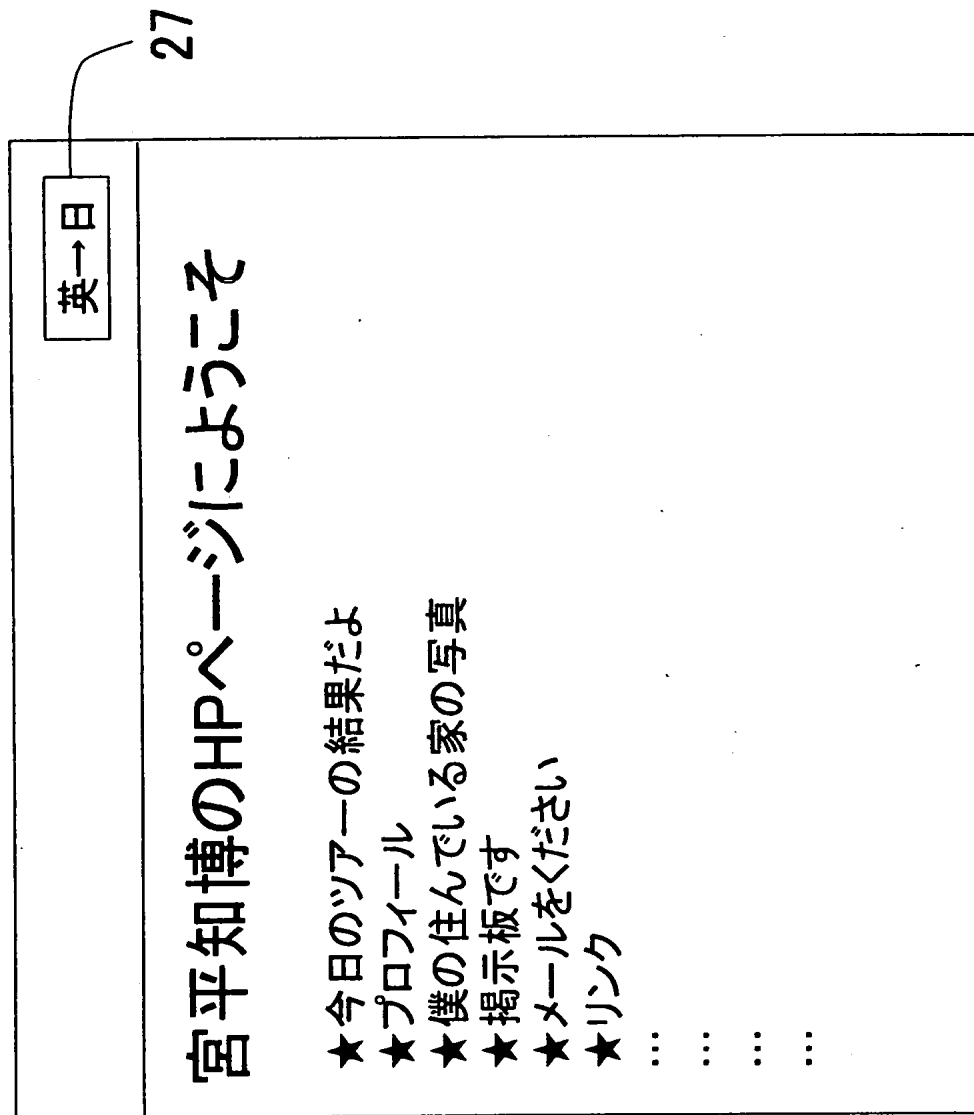 英→日
27
宮平知博のHPページにようこそ
★今日のツアーの結果だよ
★プロフィール
★僕の住んでいる家の写真
★掲示板です
★メールをください
★リンク
…
…
…
…